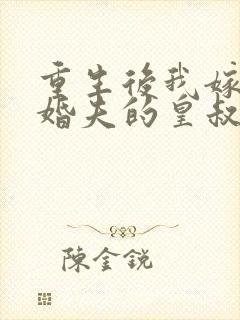 重生後我嫁
婚夫的皇叔
陳金銳